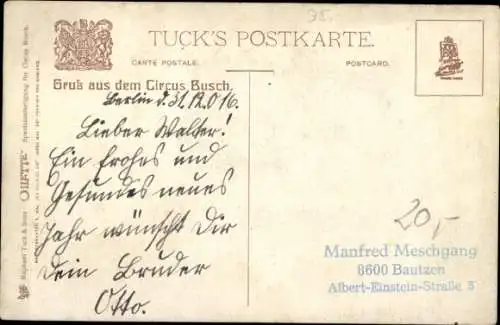 35.
TUCK'S POSTKARTE.
CARTE POSTALE.
POSTCARD.
Gruß aus dem Circus Busch.
Berlin d. 31.12.016.
Lieber Walther!
Ein Frohes und
Gesundes neues
Jahr wünscht Dir
dein Bruder
Otto.
20,-
Manfred Meschgang
8600 Bautzen
Albert-Einstein-Straße 5
Raphael Tuck & Sons "OILETTE" Spezialanfertigung für Circus Busch.